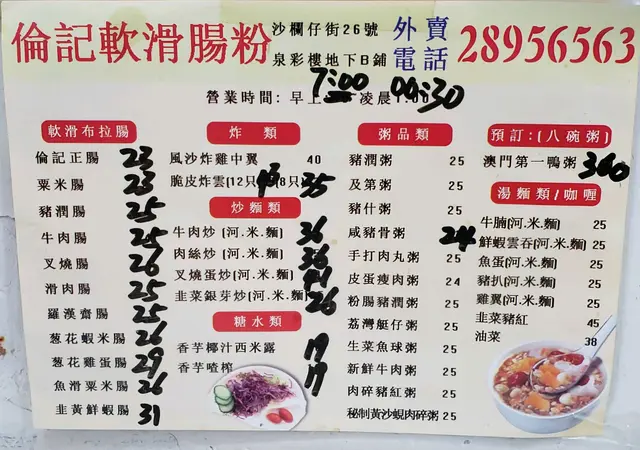 倫記軟滑腸粉
沙欄仔街26號
泉彩樓地下B鋪
外賣電話
28956563
營業時間：早上 7:00 凌晨 00:30
軟滑布拉腸
倫記正腸 23
粟米腸 23
豬潤腸 25
牛肉腸 25
叉燒腸 26
滑肉腸 25
羅漢齋腸 25
葱花蝦米腸 26
葱花雞蛋腸 29
魚滑粟米腸 26
韭黃鮮蝦腸 31
炸類
風沙炸雞中翼 40
脆皮炸雲(12只 8只 35
炒麵類
牛肉炒(河.米.麵) 36
肉絲炒(河.米.麵) 36
叉燒蛋炒(河.米.麵)
韭菜銀芽炒(河.米.麵) 26
糖水類
香芋椰汁西米露 19
香芋喳榨 17
粥品類
豬潤粥 25
及第粥 25
豬什粥 25
咸豬骨粥 24
手打肉丸粥 25
皮蛋瘦肉粥 24
粉腸豬潤粥 25
荔灣艇仔粥 25
生菜魚球粥 25
新鮮牛肉粥 25
肉碎豬紅粥 25
秘制黃沙蜆肉碎粥 25
預訂：(八碗粥)
澳門第一鴨粥 360
湯麵類/咖喱
牛腩(河.米.麵) 25
鮮蝦雲吞(河.米.麵) 25
魚蛋(河.米.麵) 25
豬扒(河.米.麵) 25
雞翼(河.米.麵) 25
韭菜豬紅 45
油菜 38